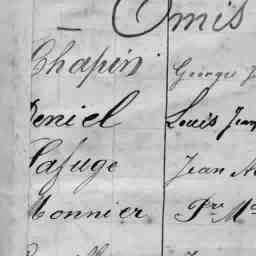 — Omis
Chapin Georges J
Deniel Louis Jean
Lafuge Jean M
Monnier Pre Ma